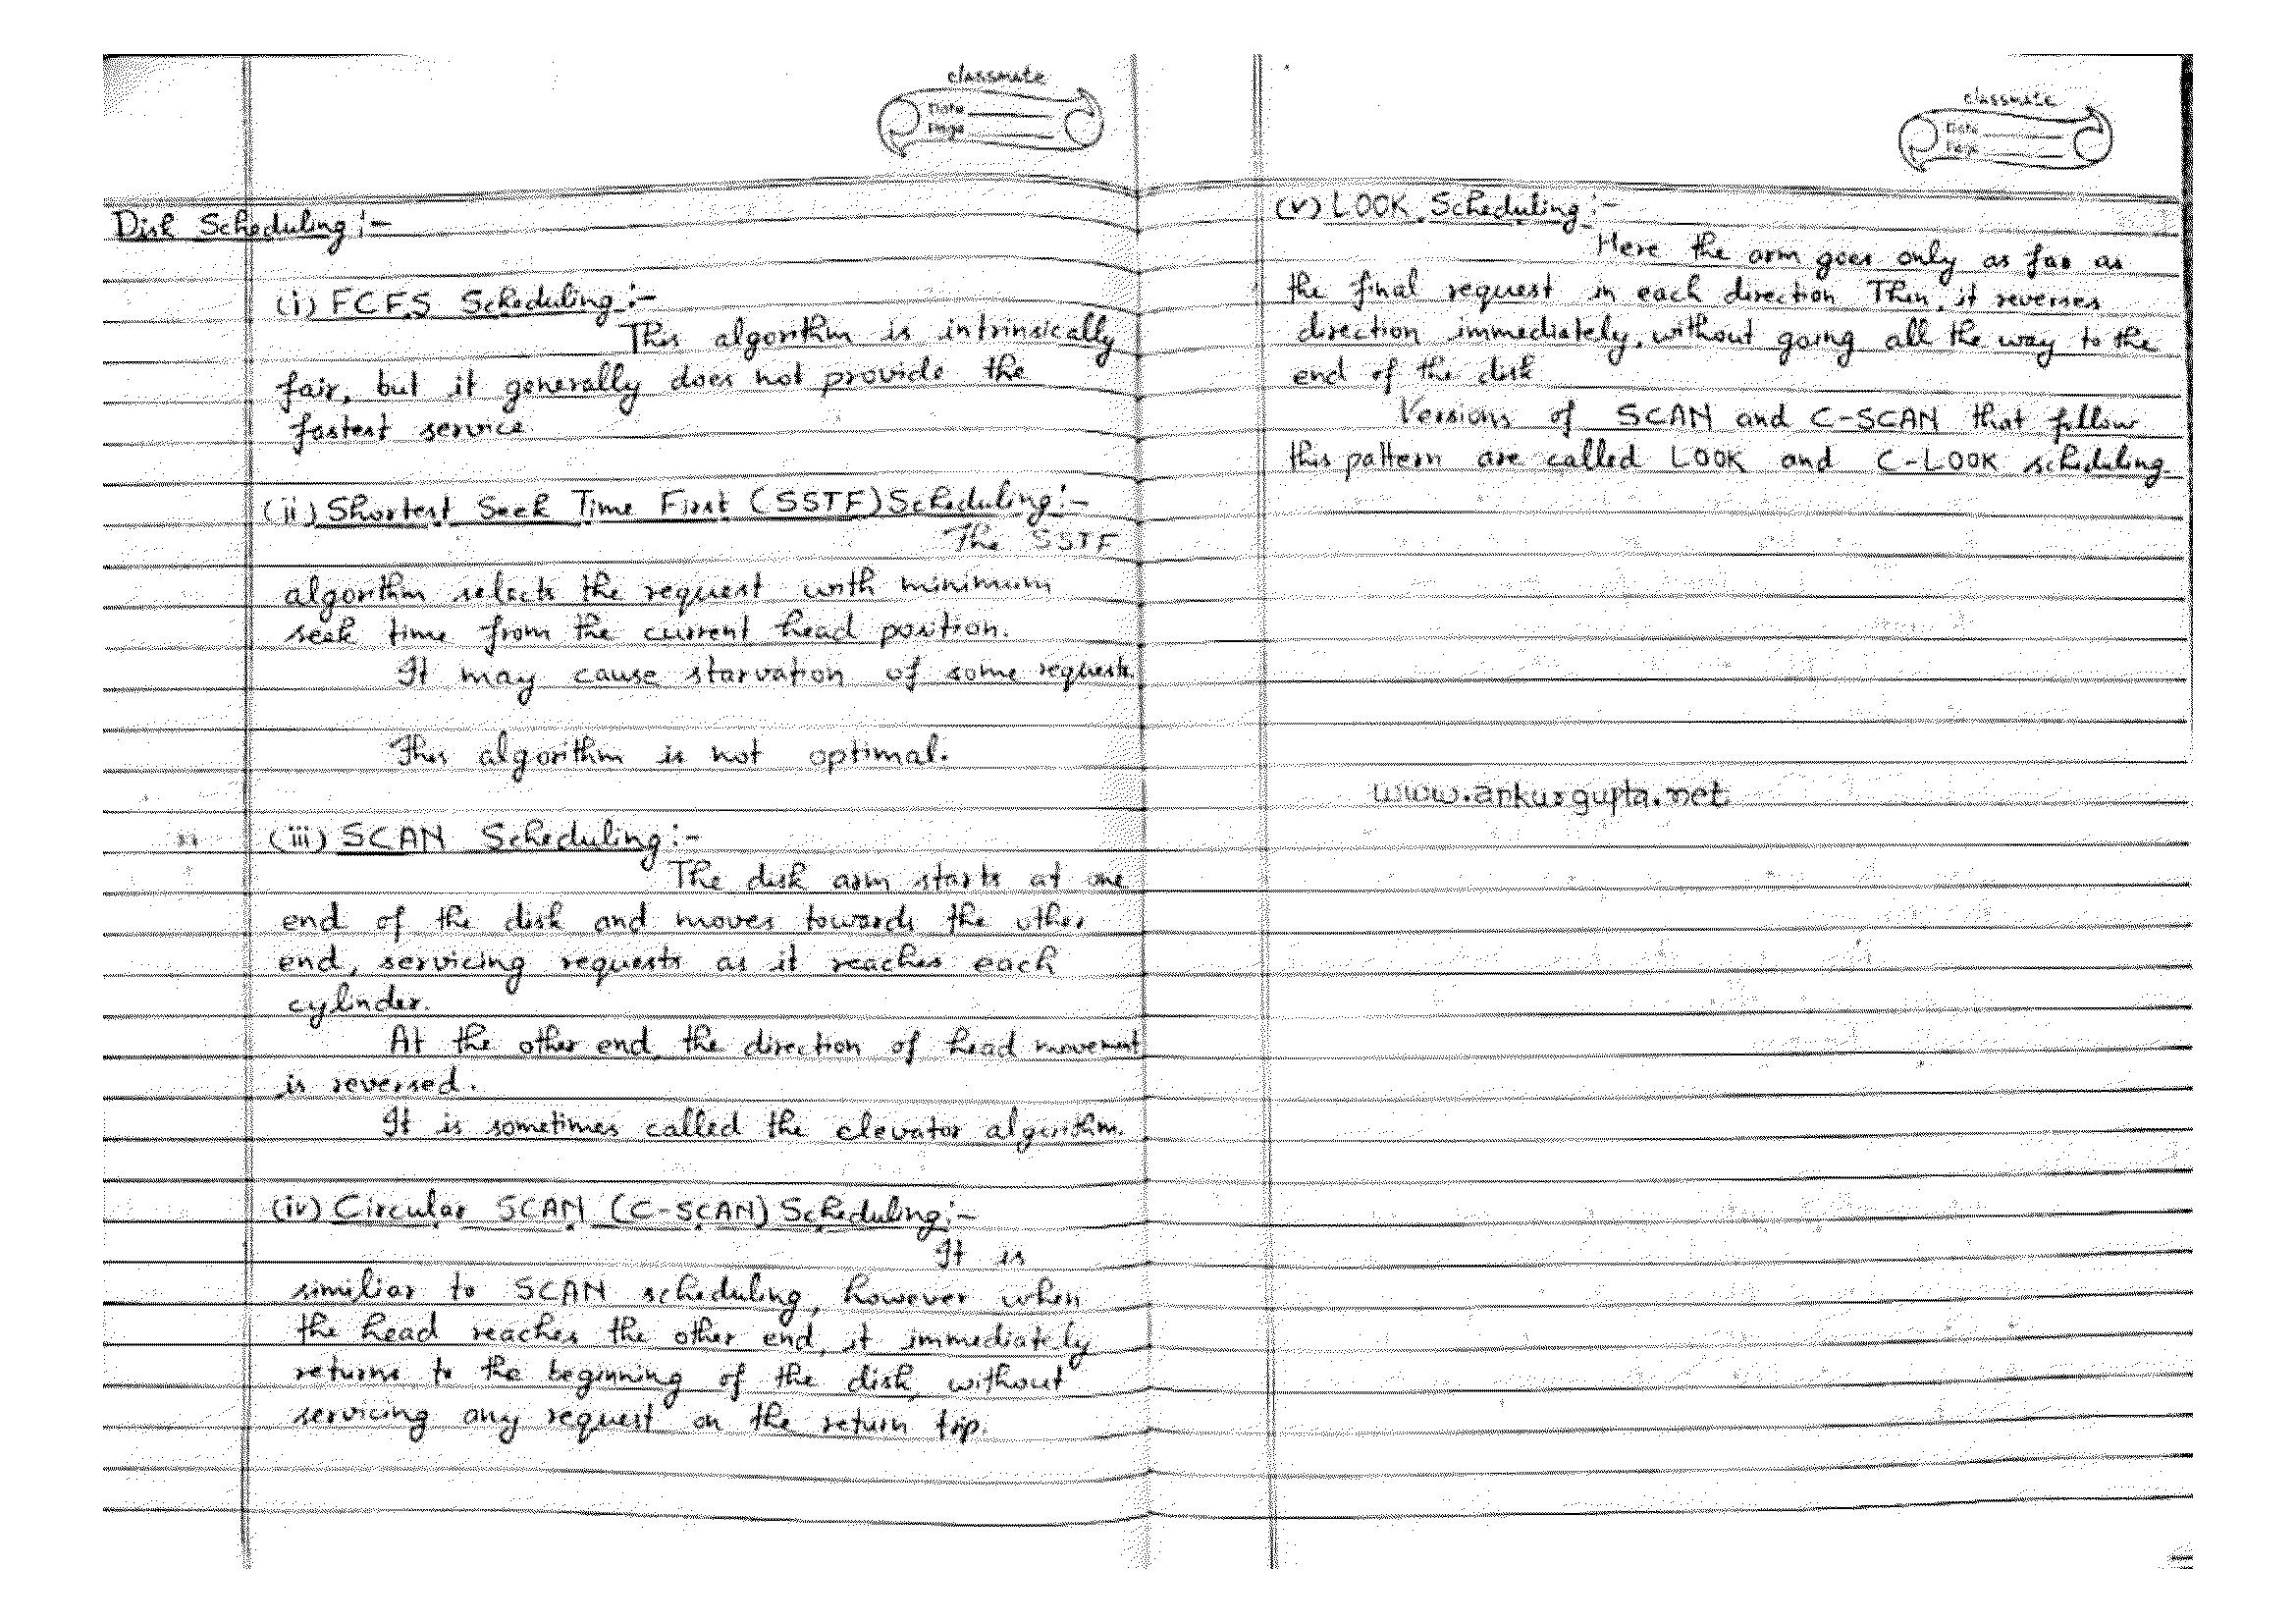 classmate
Date
Page
Disk Scheduling :-
(i) FCFS Scheduling :-
This algorithm is intrinsically
fair, but it generally does not provide the
fastest service.
(ii) Shortest Seek Time First (SSTF) Scheduling :-
The SSTF
algorithm selects the request with minimum
seek time from the current head position.
It may cause starvation of some requests.
This algorithm is not optimal.
(iii) SCAN Scheduling :-
The disk arm starts at one
end of the disk and moves towards the other
end, servicing requests as it reaches each
cylinder.
At the other end, the direction of head movement
is reversed.
It is sometimes called the elevator algorithm.
(iv) Circular SCAN (C-SCAN) Scheduling :-
It is
similiar to SCAN scheduling, however when
the head reaches the other end, it immediately
returns to the beginning of the disk, without
servicing any request on the return trip.
classmate
Date
Page
(v) LOOK Scheduling :-
Here the arm goes only as far as
the final request in each direction Then, it reverses
direction immediately, without going all the way to the
end of the disk
Versions of SCAN and C-SCAN that follow
this pattern are called LOOK and C-LOOK scheduling
www.ankurgupta.net